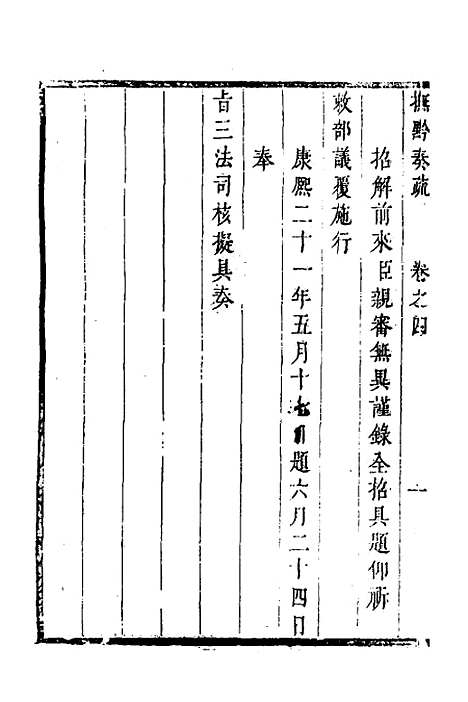 撫黔奏疏 卷之四 一
招解前來臣親審無異謹錄全招具題仰祈
敕部議覆施行
康熙二十一年五月十七日題六月二十四日
奉
旨三法司核擬具奏